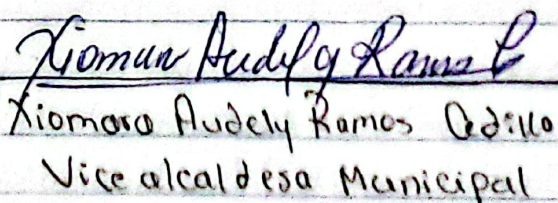 Xiomara Audely Ramos C
Xiomara Audely Ramos Cedillo
Vice alcaldesa Municipal